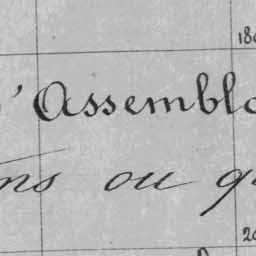 180
d'Assembla
ns ou qu
20